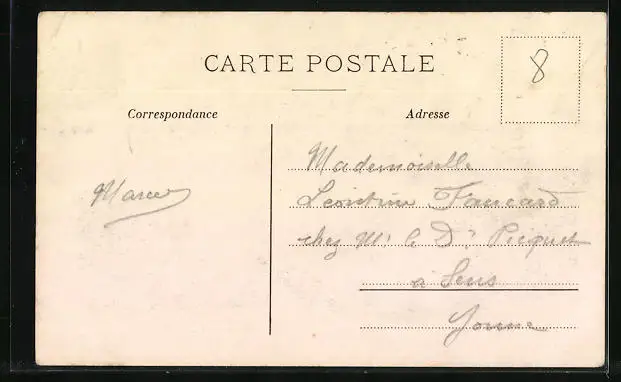 CARTE POSTALE
8
Correspondance
Adresse
Mademoiselle
chez Mr le Dr Picquet
à Sens
Yonne